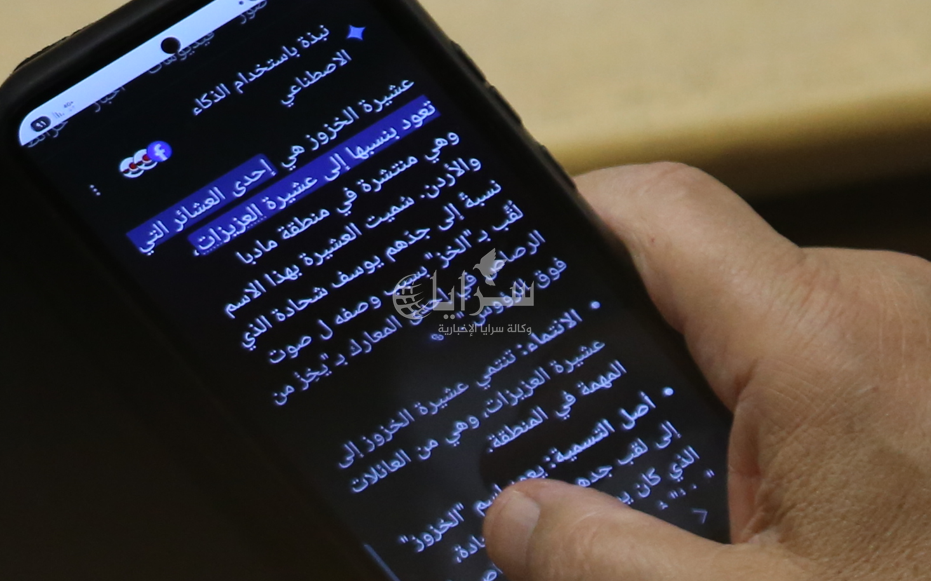 صور
فيديوهات
أخبار
نبذة باستخدام الذكاء
الاصطناعي
عشيرة الخزوز هي إحدى العشائر التي
تعود بنسبها إلى عشيرة العزيزات،
وهي منتشرة في منطقة مادبا
والأردن. سُميت العشيرة بهذا الاسم
نسبة إلى جدهم يوسف شحادة الذي
لُقّب بـ "الخز" بسبب وصفه ل صوت
الرصاص في المعارك بـ "يخز من
فوق الرؤوس".
• الانتماء: تنتمي عشيرة الخزوز إلى
عشيرة العزيزات، وهي من العائلات
المهمة في المنطقة.
• أصل التسمية: اسم "الخزوز"
إلى لقب
الذي كان
سرايا
وكالة سرايا الإخبارية